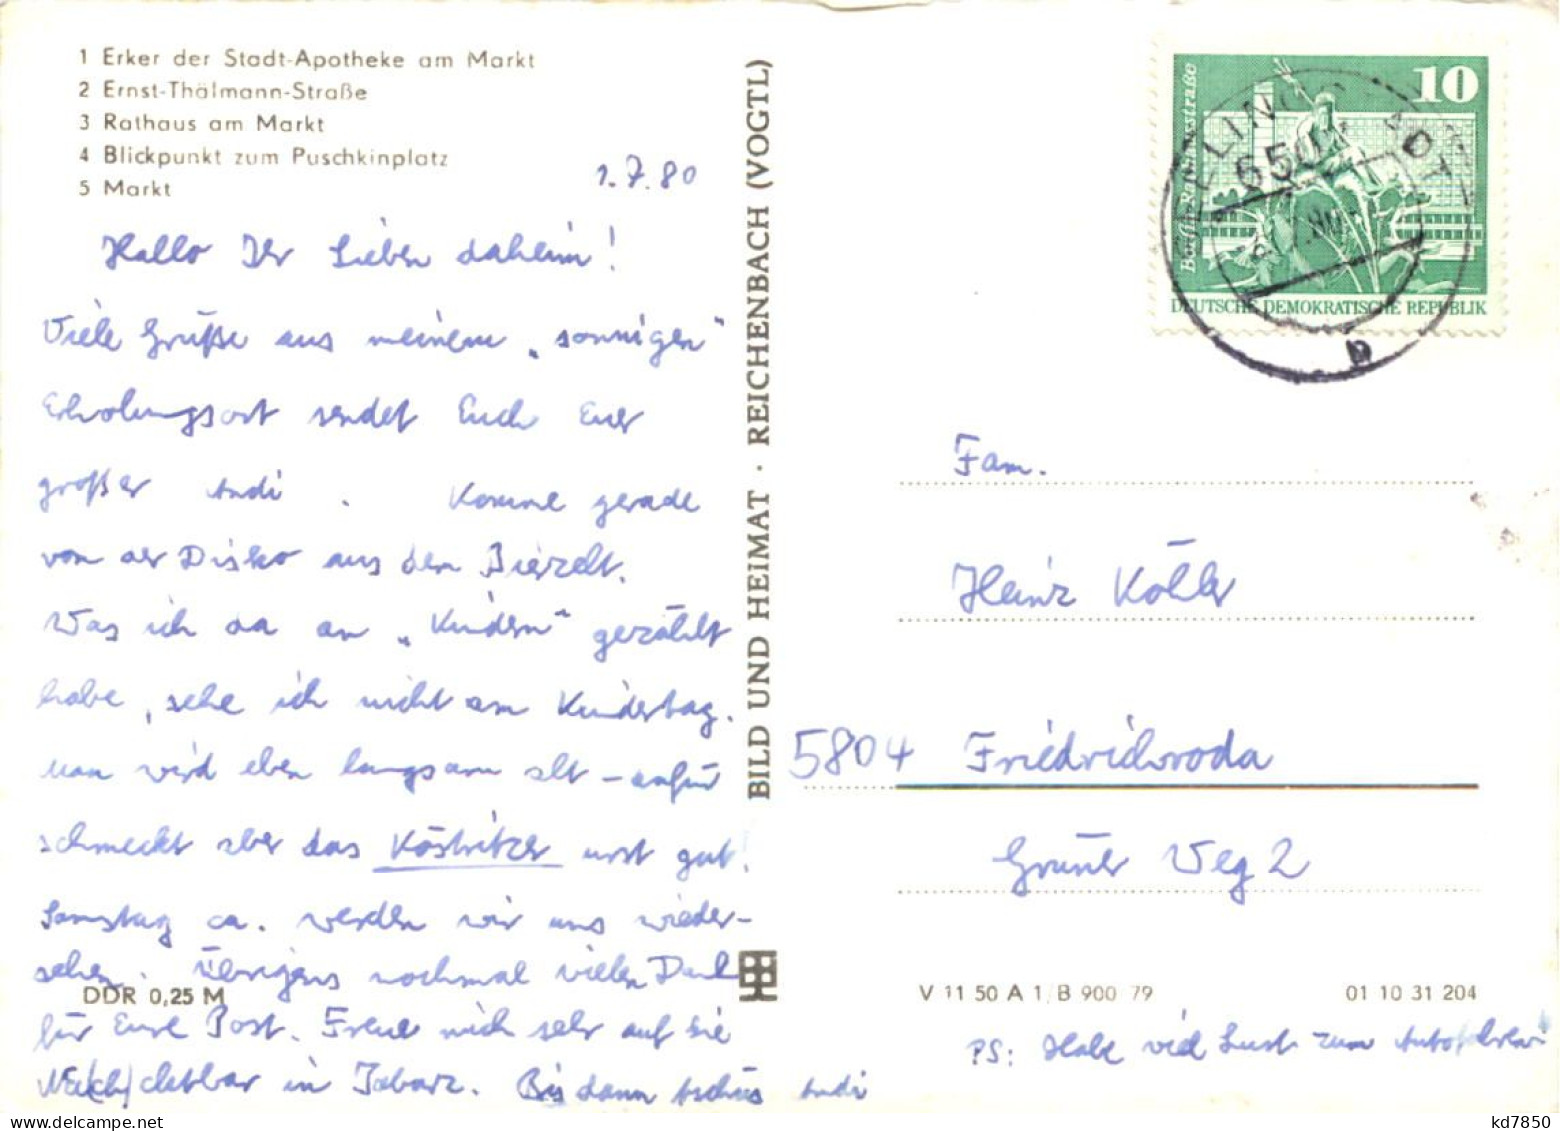 1 Erker der Stadt-Apotheke am Markt
2 Ernst-Thälmann-Straße
3 Rathaus am Markt
4 Blickpunkt zum Puschkinplatz
5 Markt
1.7.80
Hallo Ihr Lieben daheim!
Viele Grüße aus meinem „sonnigen"
Erholungsort sendet Euch Euer
großer Andi. Komme gerade
von der Disko aus dem Bierzelt.
Was ich da an „Kindern" gezählt
habe, sehe ich nicht am Kindertag.
Man wird eben langsam alt – dafür
schmeckt aber das Köstritzer urst gut!
Samstag ca. werden wir uns wieder-
sehen. Übrigens nochmal vielen Dank
DDR 0,25 M
für Eure Post. Freue mich sehr auf die
in Tabarz. Bis dann tschüs Andi
BILD UND HEIMAT · REICHENBACH (VOGTL)
10
DEUTSCHE DEMOKRATISCHE REPUBLIK
650
b
Fam.
Heinz Köller
5804 Friedrichroda
Grüner Weg 2
V 11 50 A 1/B 900/79
01 10 31 204
PS: Habe viel Lust zum Autofahren
kd7850